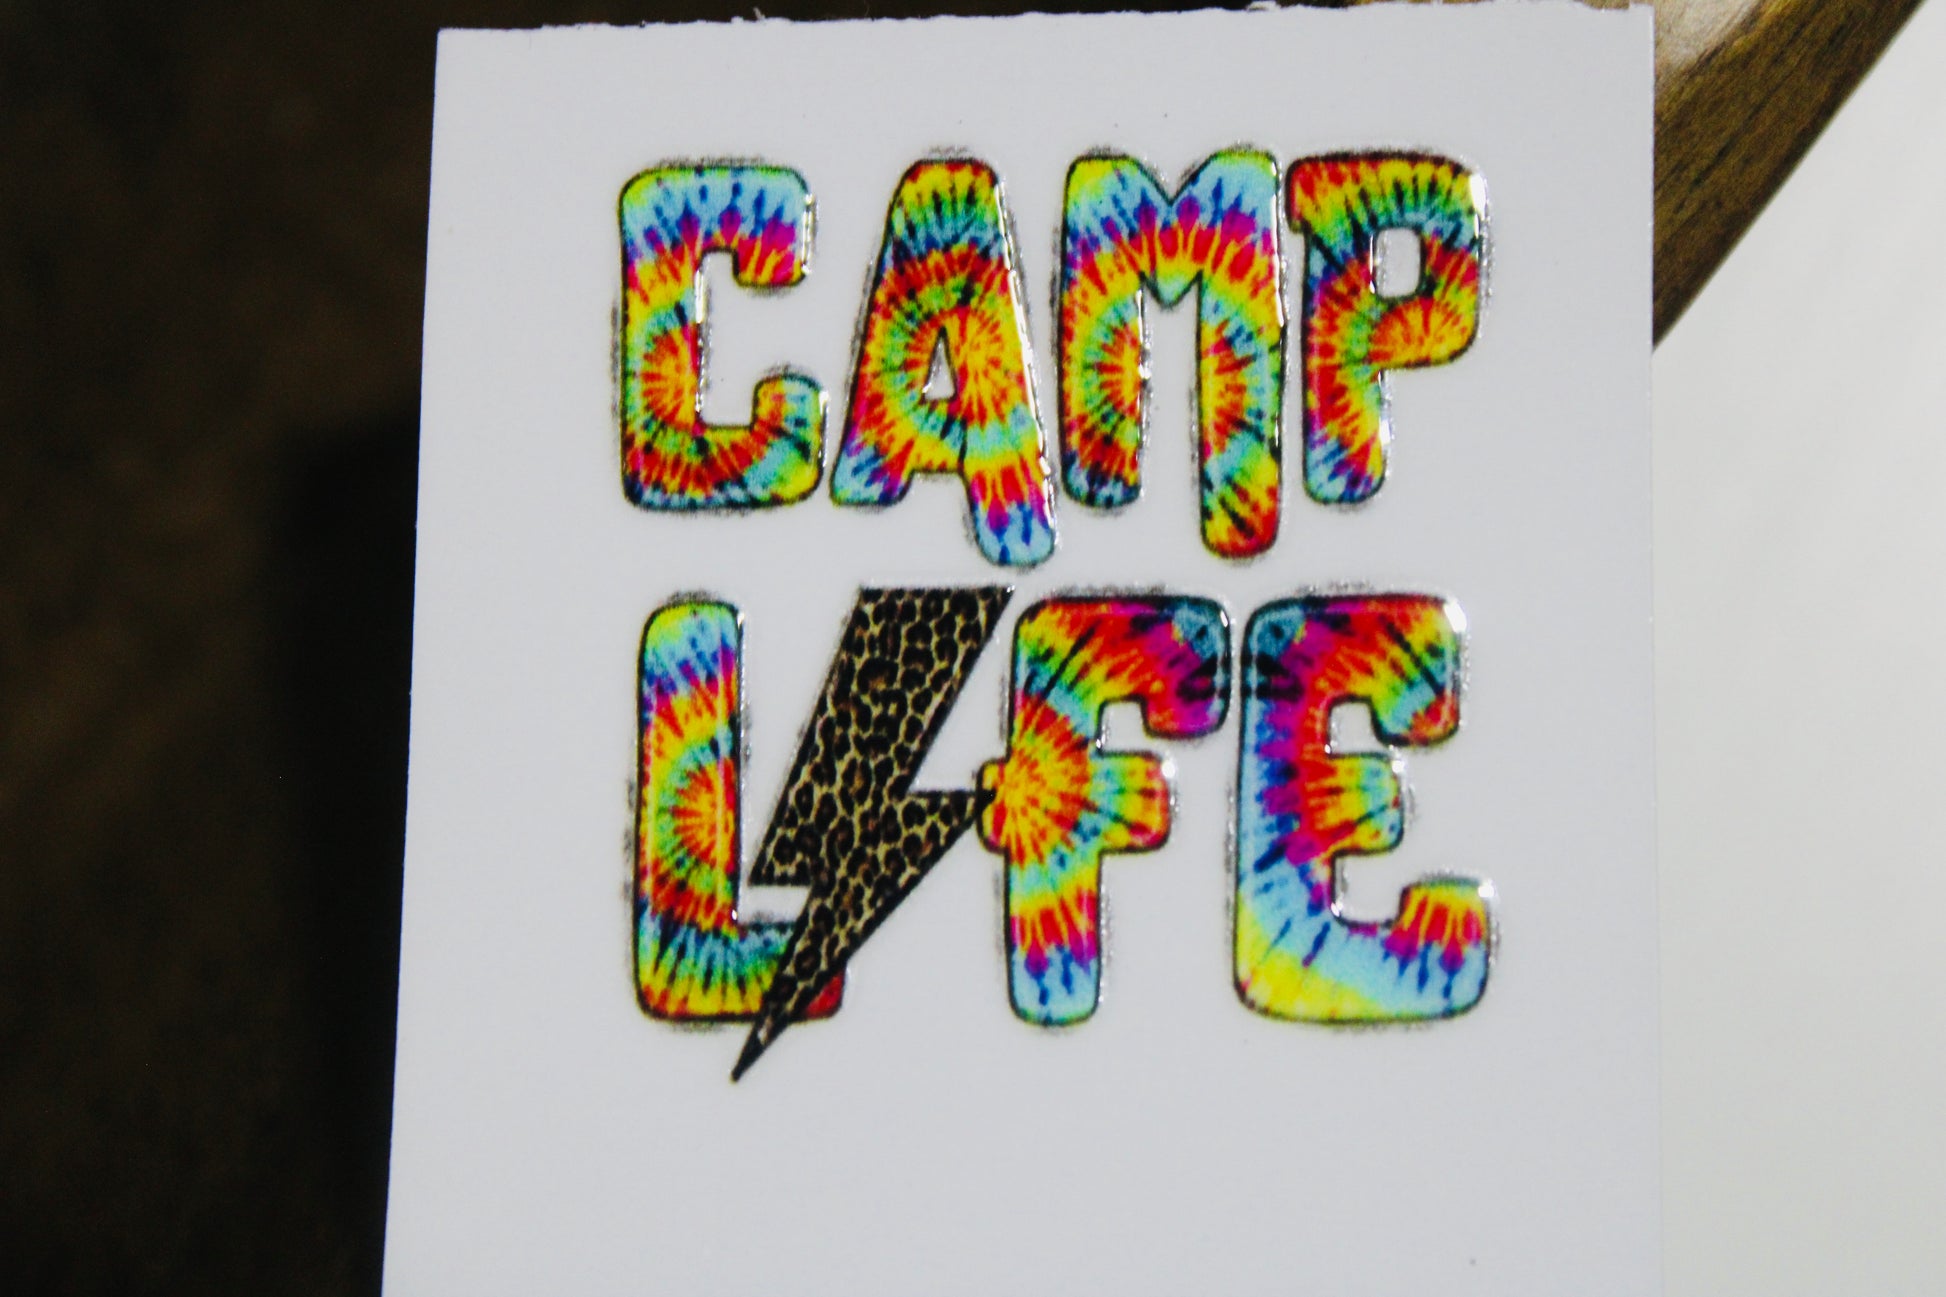 CAMP
LIFE